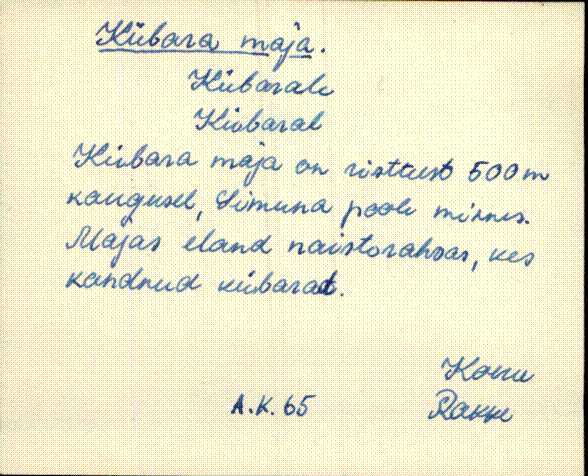 Kübara maja.
Kübarale
Kübaral
Kübara maja on risttust 500 m
kaugusel, Simuna poole minnes.
Majas eland naisterahvas, kes
kandnud kübarat.
Koeru
A.K. 65 Rakke